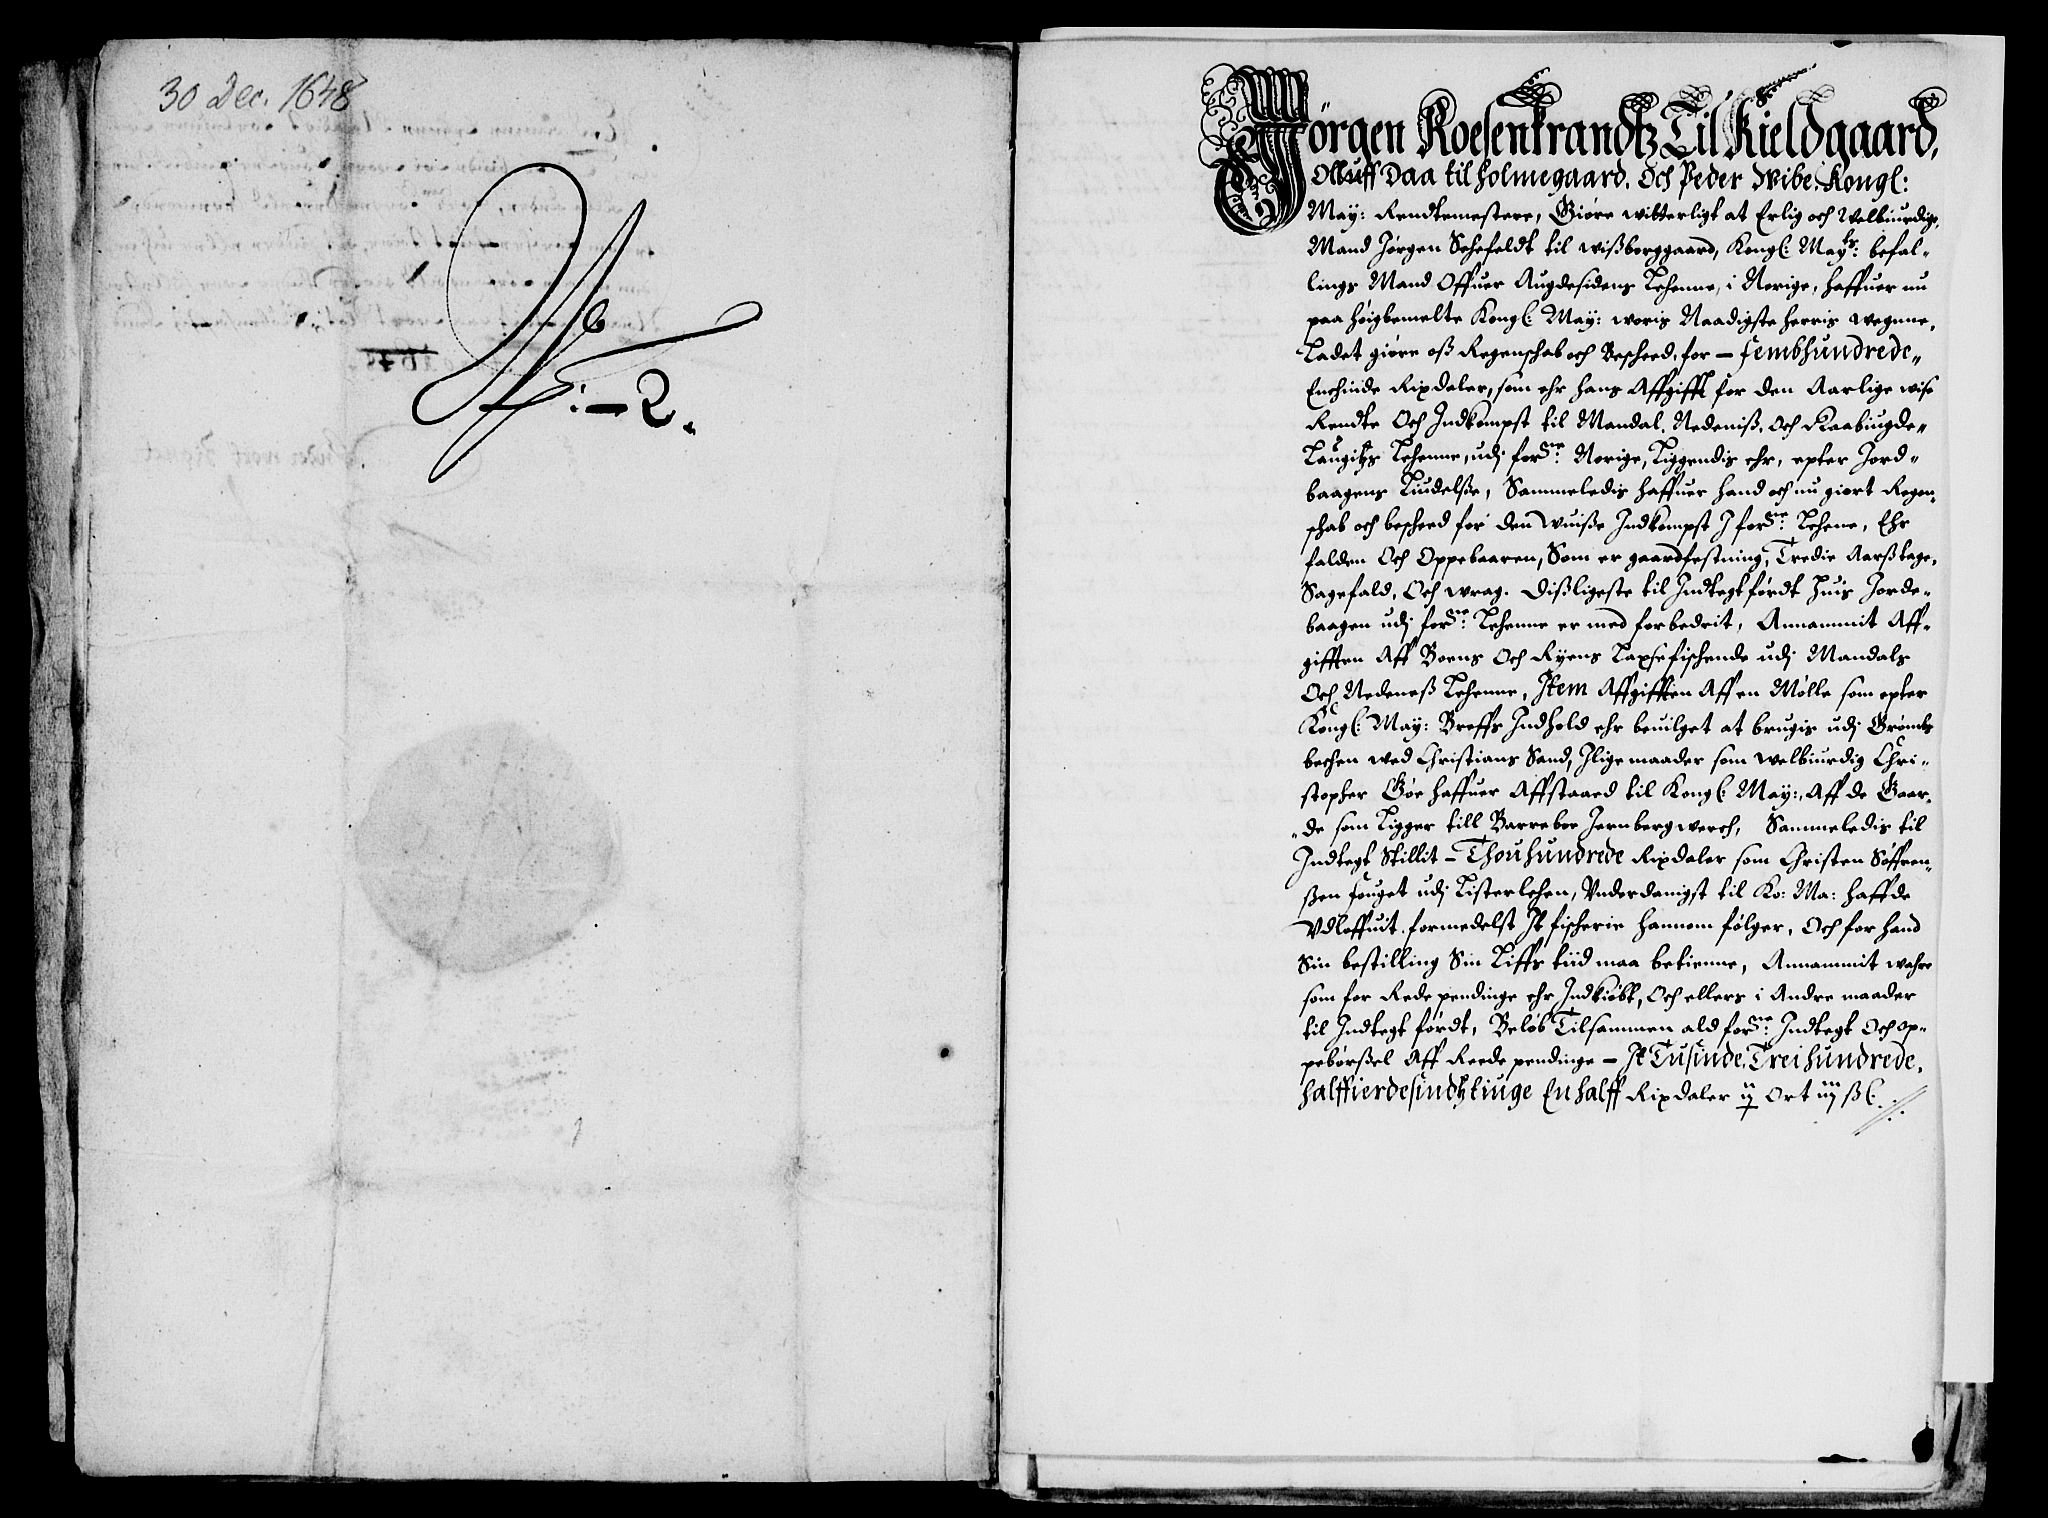 30 Dec. 1648
No: – 2.
Jörgen Roesenkrandtz Til Kieldgaard,
Olluff Daa til Holmegaard. Och Peder Wibe. Kongl:
May: Rendtemestere, Giöre witterligt at Erlig och Welbiurdige,
Mand Jörgen Sehefeldt til Wißborggaard, Kongl: Mayts: befal-
lings Mand Offuer Augdesidens Lehenne, i Norige, haffuer nu
paa höigbemelte Kongl: May: woris Naadigste herris wegnne,
Ladet giöre oß Regenschab och Bescheed, for – fembhundrede
Enchinde Rixdaler, som ehr hans Affgifft for den Aarlige wise
Rendte Och Indkompst til Mandal, Nedeniß, Och Raabiugde-
Laugitz Lehenne, udj forne: Norige, Liggendis ehr, epter Jord-
baagens Liudelße, Sammeledis haffuer hand och nu giort Regen-
schab och bescheed for den Wuiße Indkompst J forne: Lehene, Ehr
falden Och Oppebaaren, Som er gaardfestning, Tredie Aarßtage,
Sagefald, Och wrag. Dißligeste til Indtegt fördt huis Jorde-
baagen udj forne: Lehenne er med forbedrit, Annammit Aff-
gifften Aff Boens Och Ryens Laxsefischende udj Mandals
Och Nedeneß Lehenne, Item Affgifften Aff en Mölle som epter
Kongl: May: Breffs Indhold ehr beuilget at brugis udj Grömbs
bechen wed Christians Sand, Jlige maader som welbiurdig Chri-
stopher Göe haffuer Affstaaed til Kongl: May:, Aff de Gaar-
de som Ligger till Barreboe Jernbergwerch, Sammeledis til
Indtegt Stillit – Thouhundrede Rixdaler som Christen Söffren-
ßen fouget udj Listerlehen, Vnderdanigst til Ko: Ma: haffde
Vdloffuit. formedelst Jt fischerie hannom fölger, Och for hand
Sin bestilling Sin Liffs tiid maa betienne, Annammit wahre
som for Rede pendinge ehr Indkiöbt, Och ellers i Andre maader
til Indtegt fördt, Belöb Tilsammen ald forne: Indtegt Och op-
pebörßel Aff Reede pendinge – Jt Tusinde, Trei hundrede,
halffierdesindtztiuge En halff Rixdaler ij Ort iiij ßl: